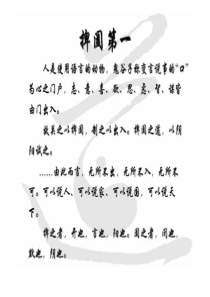 捭阖第一
人是使用语言的动物，鬼谷子称变言说事的“口”
为心之门户，志、意、喜、欲、思、虑、智、谋皆
由门出入。
故关之以捭阖，制之以出入。捭阖之道，以阴
阳试之。
……由此而言，无所不出，无所不入，无所不
可。可以说人，可以说家，可以说国，可以说天
下。
捭之者，开也，言也，阳也。阖之者，闭也，
默也，阴也。